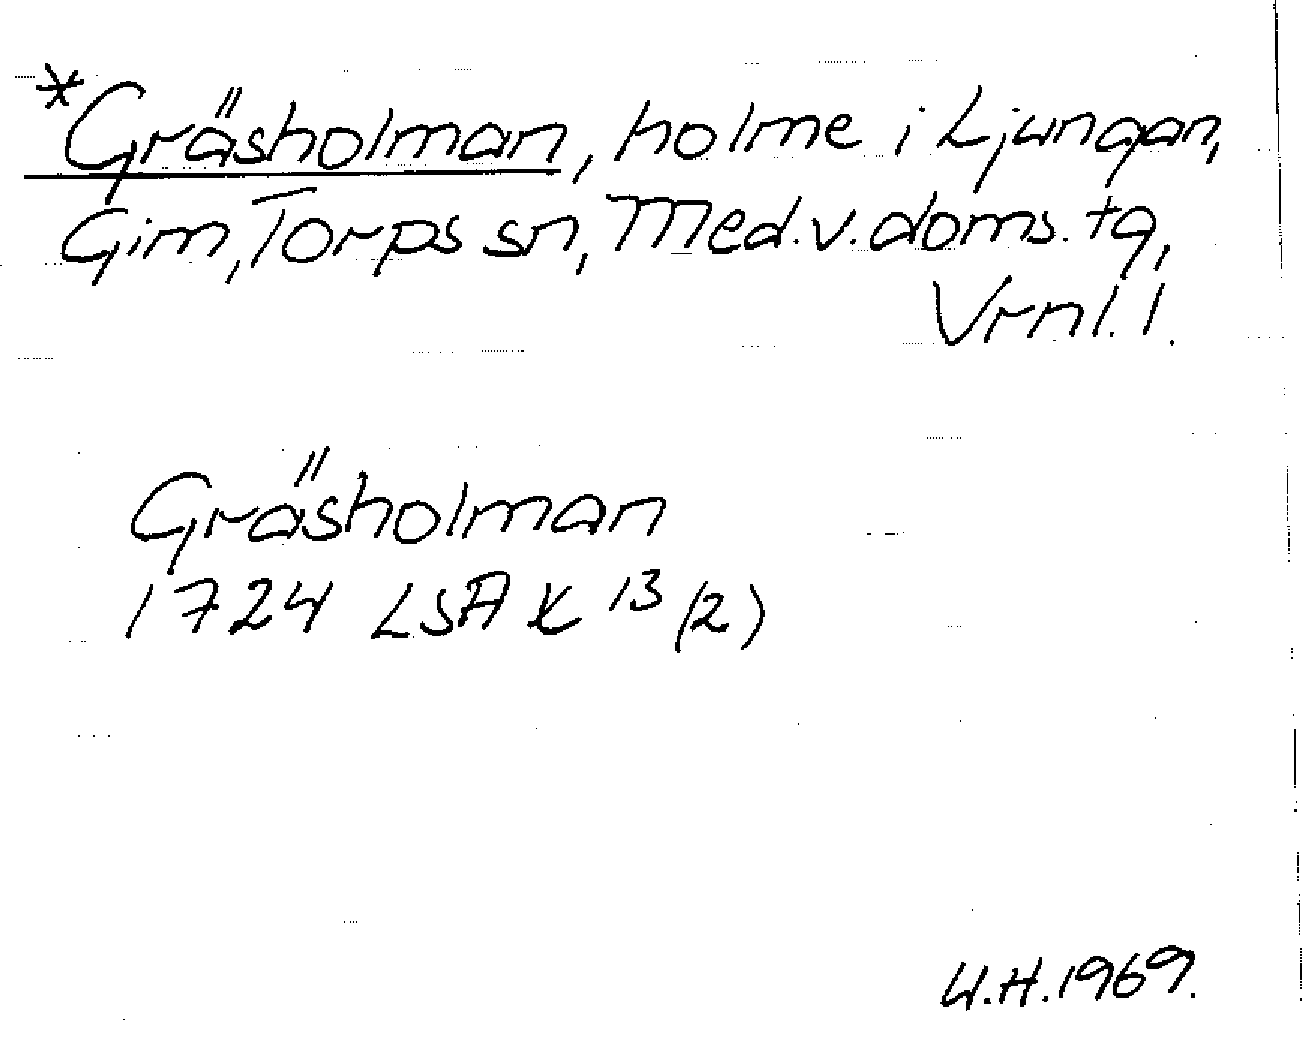 *Gräsholman, holme i Ljungan,
Gim, Torps sn, Med.v.doms.tg,
Vrnl.l.
Gräsholman
1724 LSA X 13 (2)
U.H.1969.